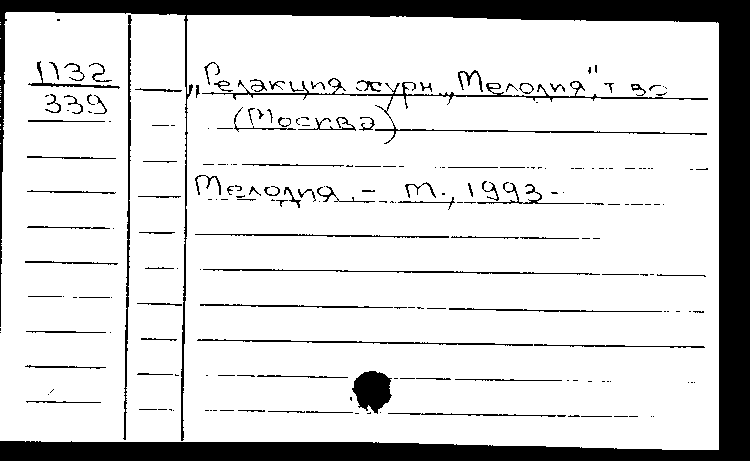 П32
339
„Редакция журн. „Мелодия", т-во
(Москва)
Мелодия. - М., 1993 -